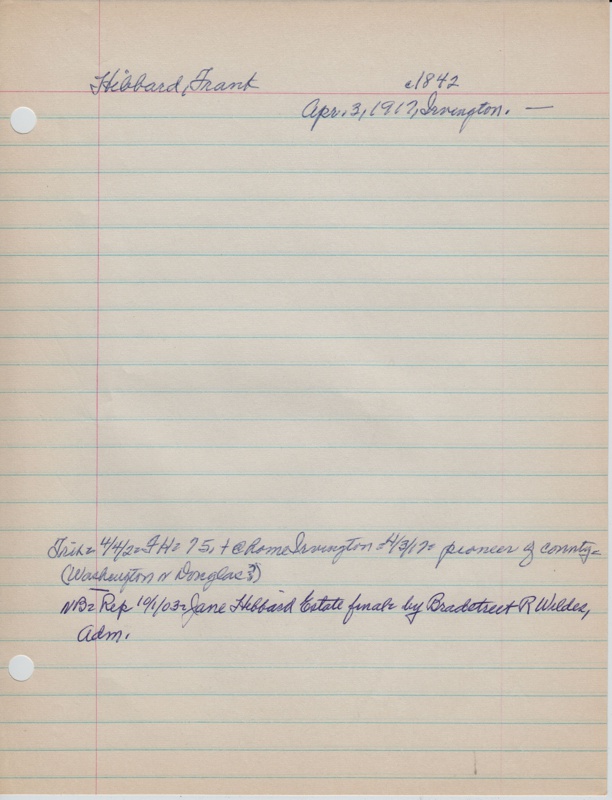 Hibbard, Frank c1842
Apr. 3, 1917, Irvington. —
Trib= 4/4/2= FH= 75, † @ home Irvington =4/3/17= pioneer of county=
(Washington or Douglas?)
NB= Rep 10/1/03= Jane Hibbard Estate final= by Bradstreet R Wildes,
adm.